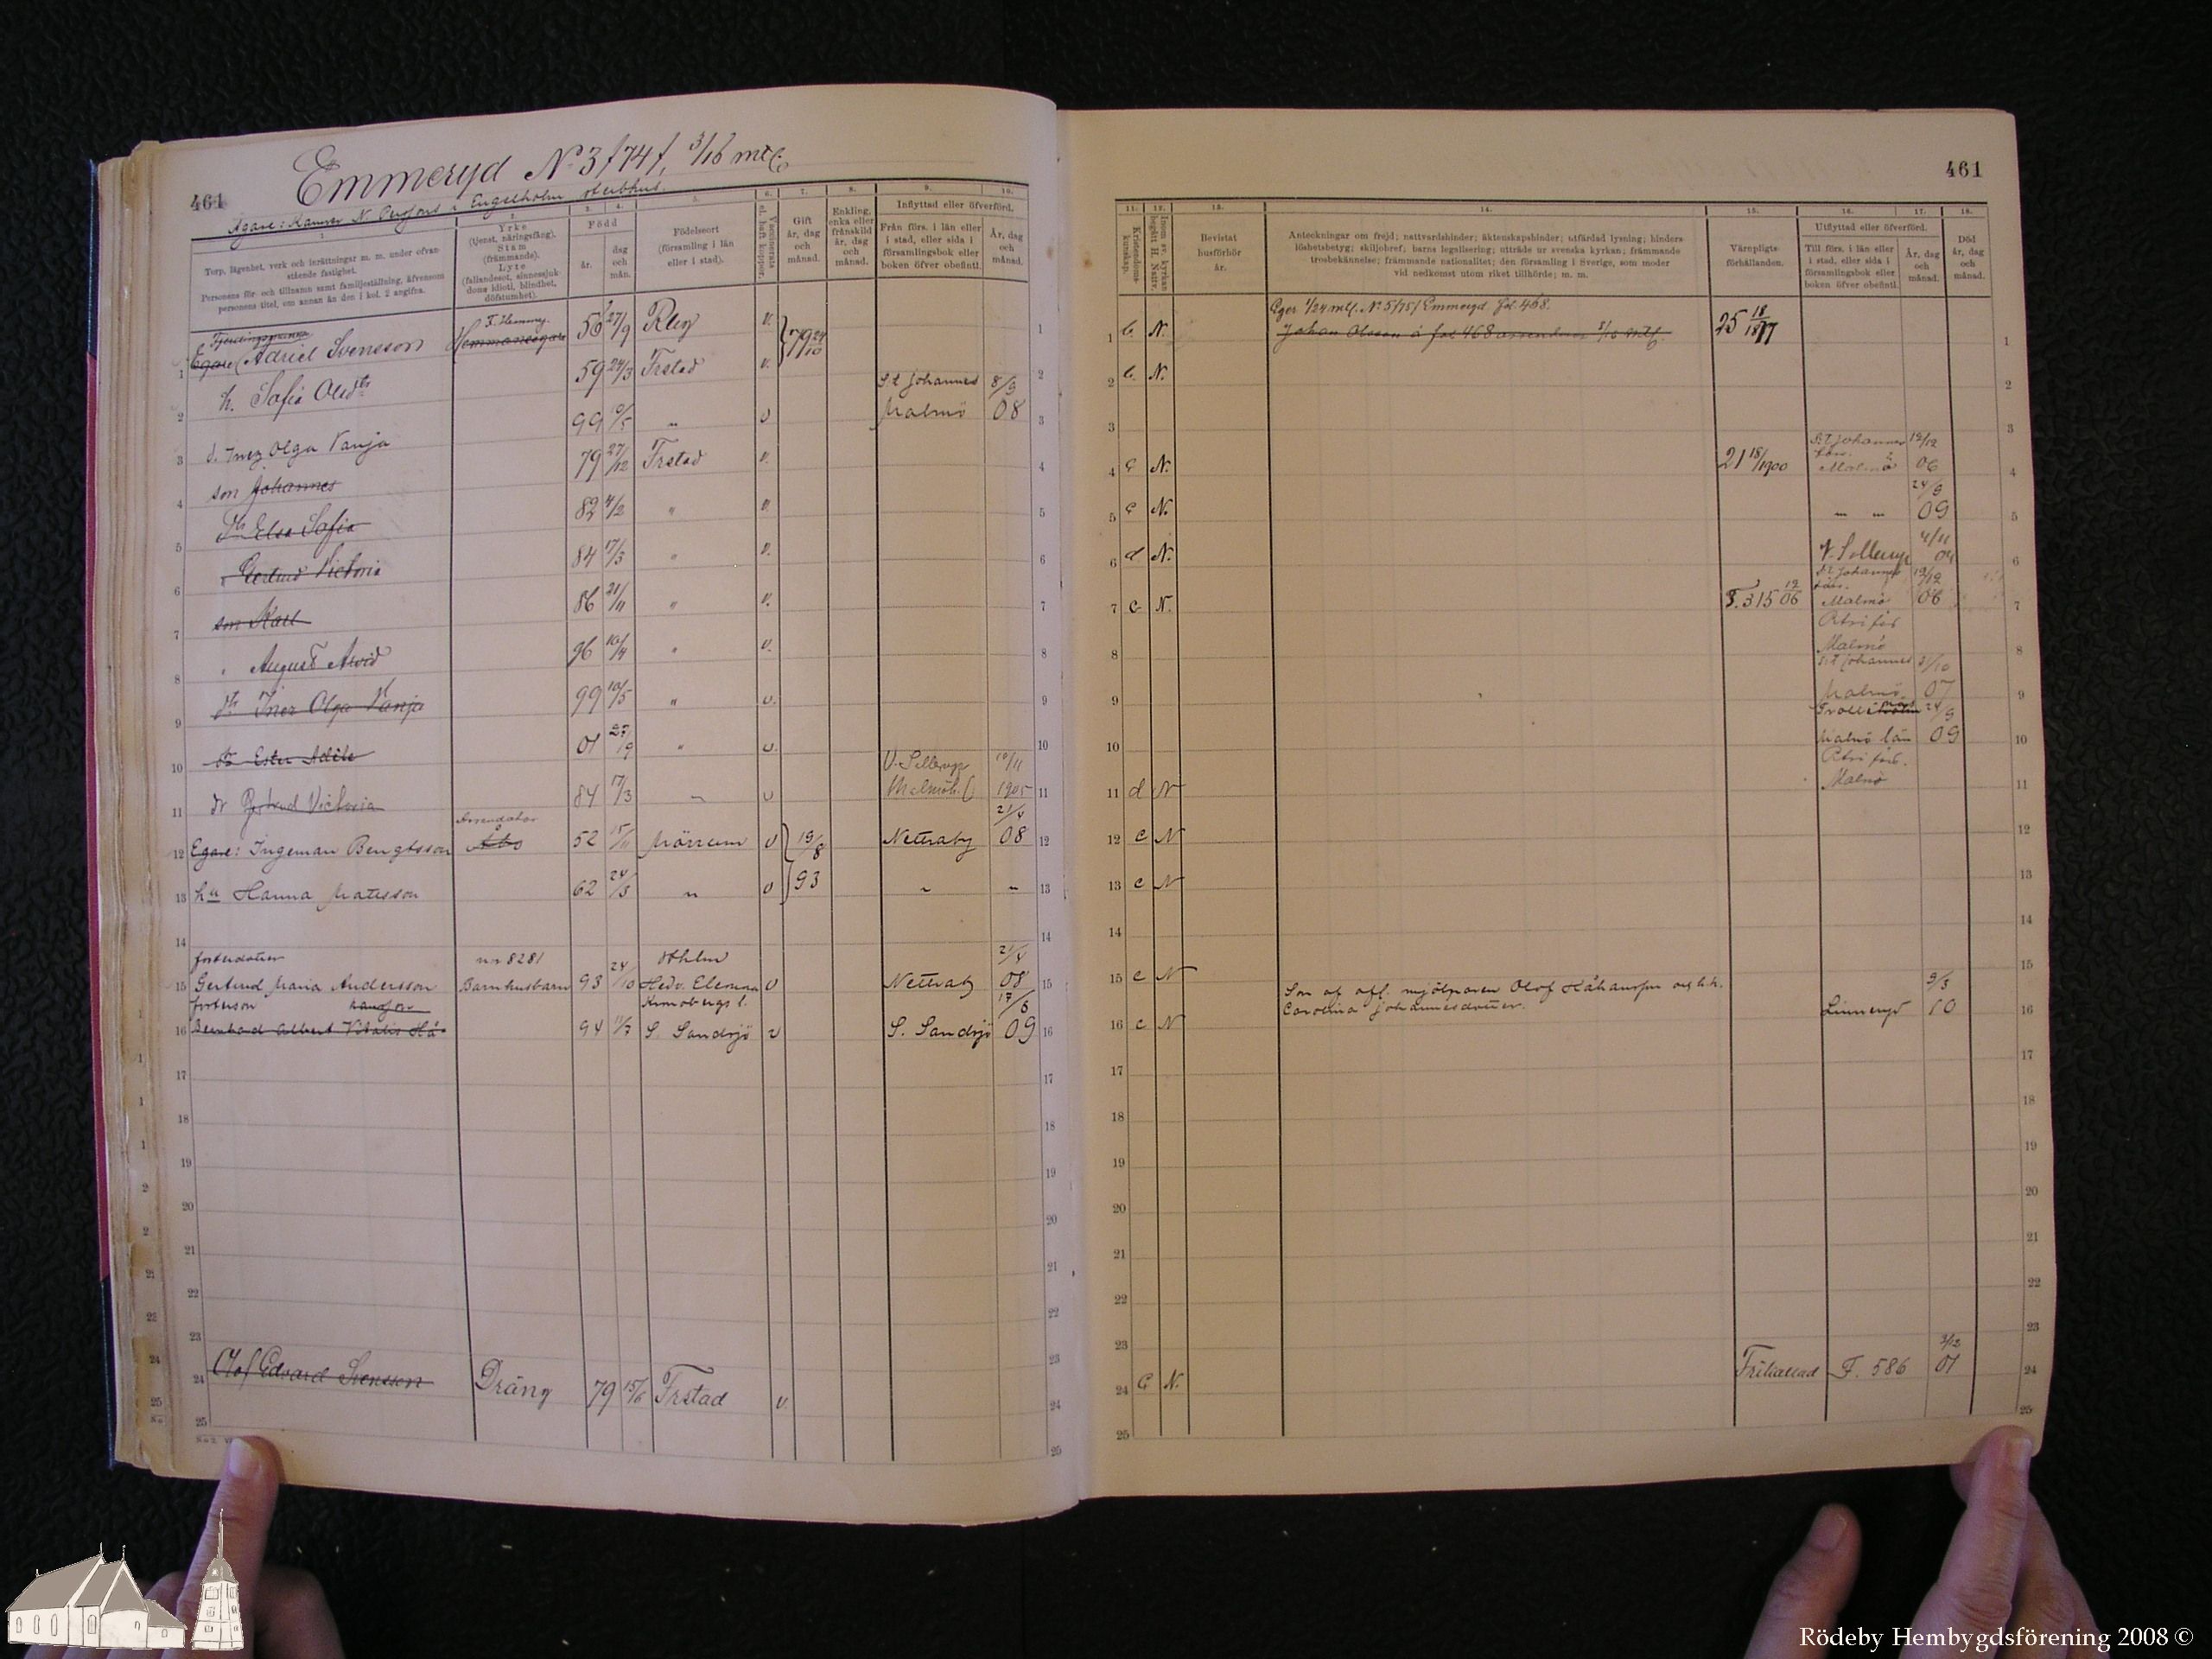 461
Emmeryd No 3/74/, 3/16 mtl.
Egare: N. i Engelholm sterbhus.
1.
Torp, lägenhet, verk och inrättningar m. m. under ofvanstående fastighet.
Personens för- och tillnamn samt familjeställning, äfvensom personens titel, om annan än den i kol. 2 angifna.
2.
Yrke
(tjenst, näringsfång).
Stam
(främmande).
Lyte
(fallandesot, sinnessjukdom, idioti, blindhet, döfstumhet).
3. 4.
Född
år. dag och mån.
5.
Födelseort
(församling i län eller i stad).
6.
7.
Gift
år, dag och månad.
8.
Enkling, enka eller frånskild år, dag och månad.
9. 10.
Inflyttad eller öfverförd.
Från förs. i län eller i stad, eller sida i församlingsbok eller boken öfver obefintl.
År, dag och månad.
1 Egare Adriel Svensson F. Hemmeg. Hemmansegare 56 27/9 Rby v. 79 29/10
2 h. Sofia Olsdtr 59 24/3 Frstad v.
3 d. Inez Olga Vanja 99 10/5 " v St Johannes Malmö 8/9 08
4 son Johannes 79 27/12 Frstad v.
5 dtr Elsa Sofia 82 4/2 " v.
6 " Gertrud Victoria 84 17/3 " v.
7 son Karl 86 21/11 " v.
8 " August Arvid 96 10/4 " v.
9 dtr Inez Olga Vanja 99 10/5 " v.
10 dtr Ester Adéle 01 27/9 " v.
11 dr Gertrud Victoria 84 17/3 " v V. Sallerup Malmöh. l. 10/11 1905
12 Egare: Ingeman Bengtsson Arrendator Åbo 52 15/11 Mörrum v 19/8 93 Nettraby 21/4 08
13 hu Hanna Matisson 62 24/3 " v " "
14
fosterdotter
15 Gertrud Maria Andersson nr 8281 Barnhusbarn 93 24/10 Sthlm Hedv. Eleonora v Nettraby 21/4 08
fosterson
16 Bernhard Albert Vitalis Håkansson 94 11/7 Kronobergs l. S. Sandsjö v S. Sandsjö 17/8 09
17
18
19
20
21
22
23
24 Olof Edvard Svensson Dräng 79 15/6 Frstad v.
25
461
11.
Kristendomskunskap.
12.
13.
Bevistat husförhör år.
14.
Anteckningar om frejd; nattvardshinder; äktenskapshinder; utfärdad lysning; hinders löshetsbetyg; skiljobref; barns legalisering; utträde ur svenska kyrkan; främmande trosbekännelse; främmande nationalitet; den församling i Sverige, som moder vid nedkomst utom riket tillhörde; m. m.
15.
Värnpligtsförhållanden.
16. 17.
Utflyttad eller öfverförd.
Till förs. i län eller i stad, eller sida i församlingsbok eller boken öfver obefintl.
År, dag och månad.
18.
Död
år, dag och månad.
Eger 1/24 mtl. No 5/75/ Emmeryd fol. 468.
1 b. N. Johan Olsson å fol 468 arrenderar 3/16 mtl. 25 18/1877
2 b. N.
3
4 c N. 21 18/1900 St Johannes förs. Malmö 12/12 06
5 c N. " " 24/9 09
6 d N. V. Sallerup 4/11 04
7 c N. F. 315 12/06 St Johannes förs. Malmö 12/12 06
8 Petri förs Malmö
9 St Johannes Malmö 21/10 07
10 Malmö län 24/9 09
11 d N Petri förs. Malmö
12 c N
13 c N
14
15 c N
16 c N Son af afl. mjölnaren Olof Håkansson och h. h. Carolina Johannesdotter. Linneryd 9/3 10
17
18
19
20
21
22
23
24 C N. Frikallad F. 586 3/12 01
25
Rödeby Hembygdsförening 2008 ©